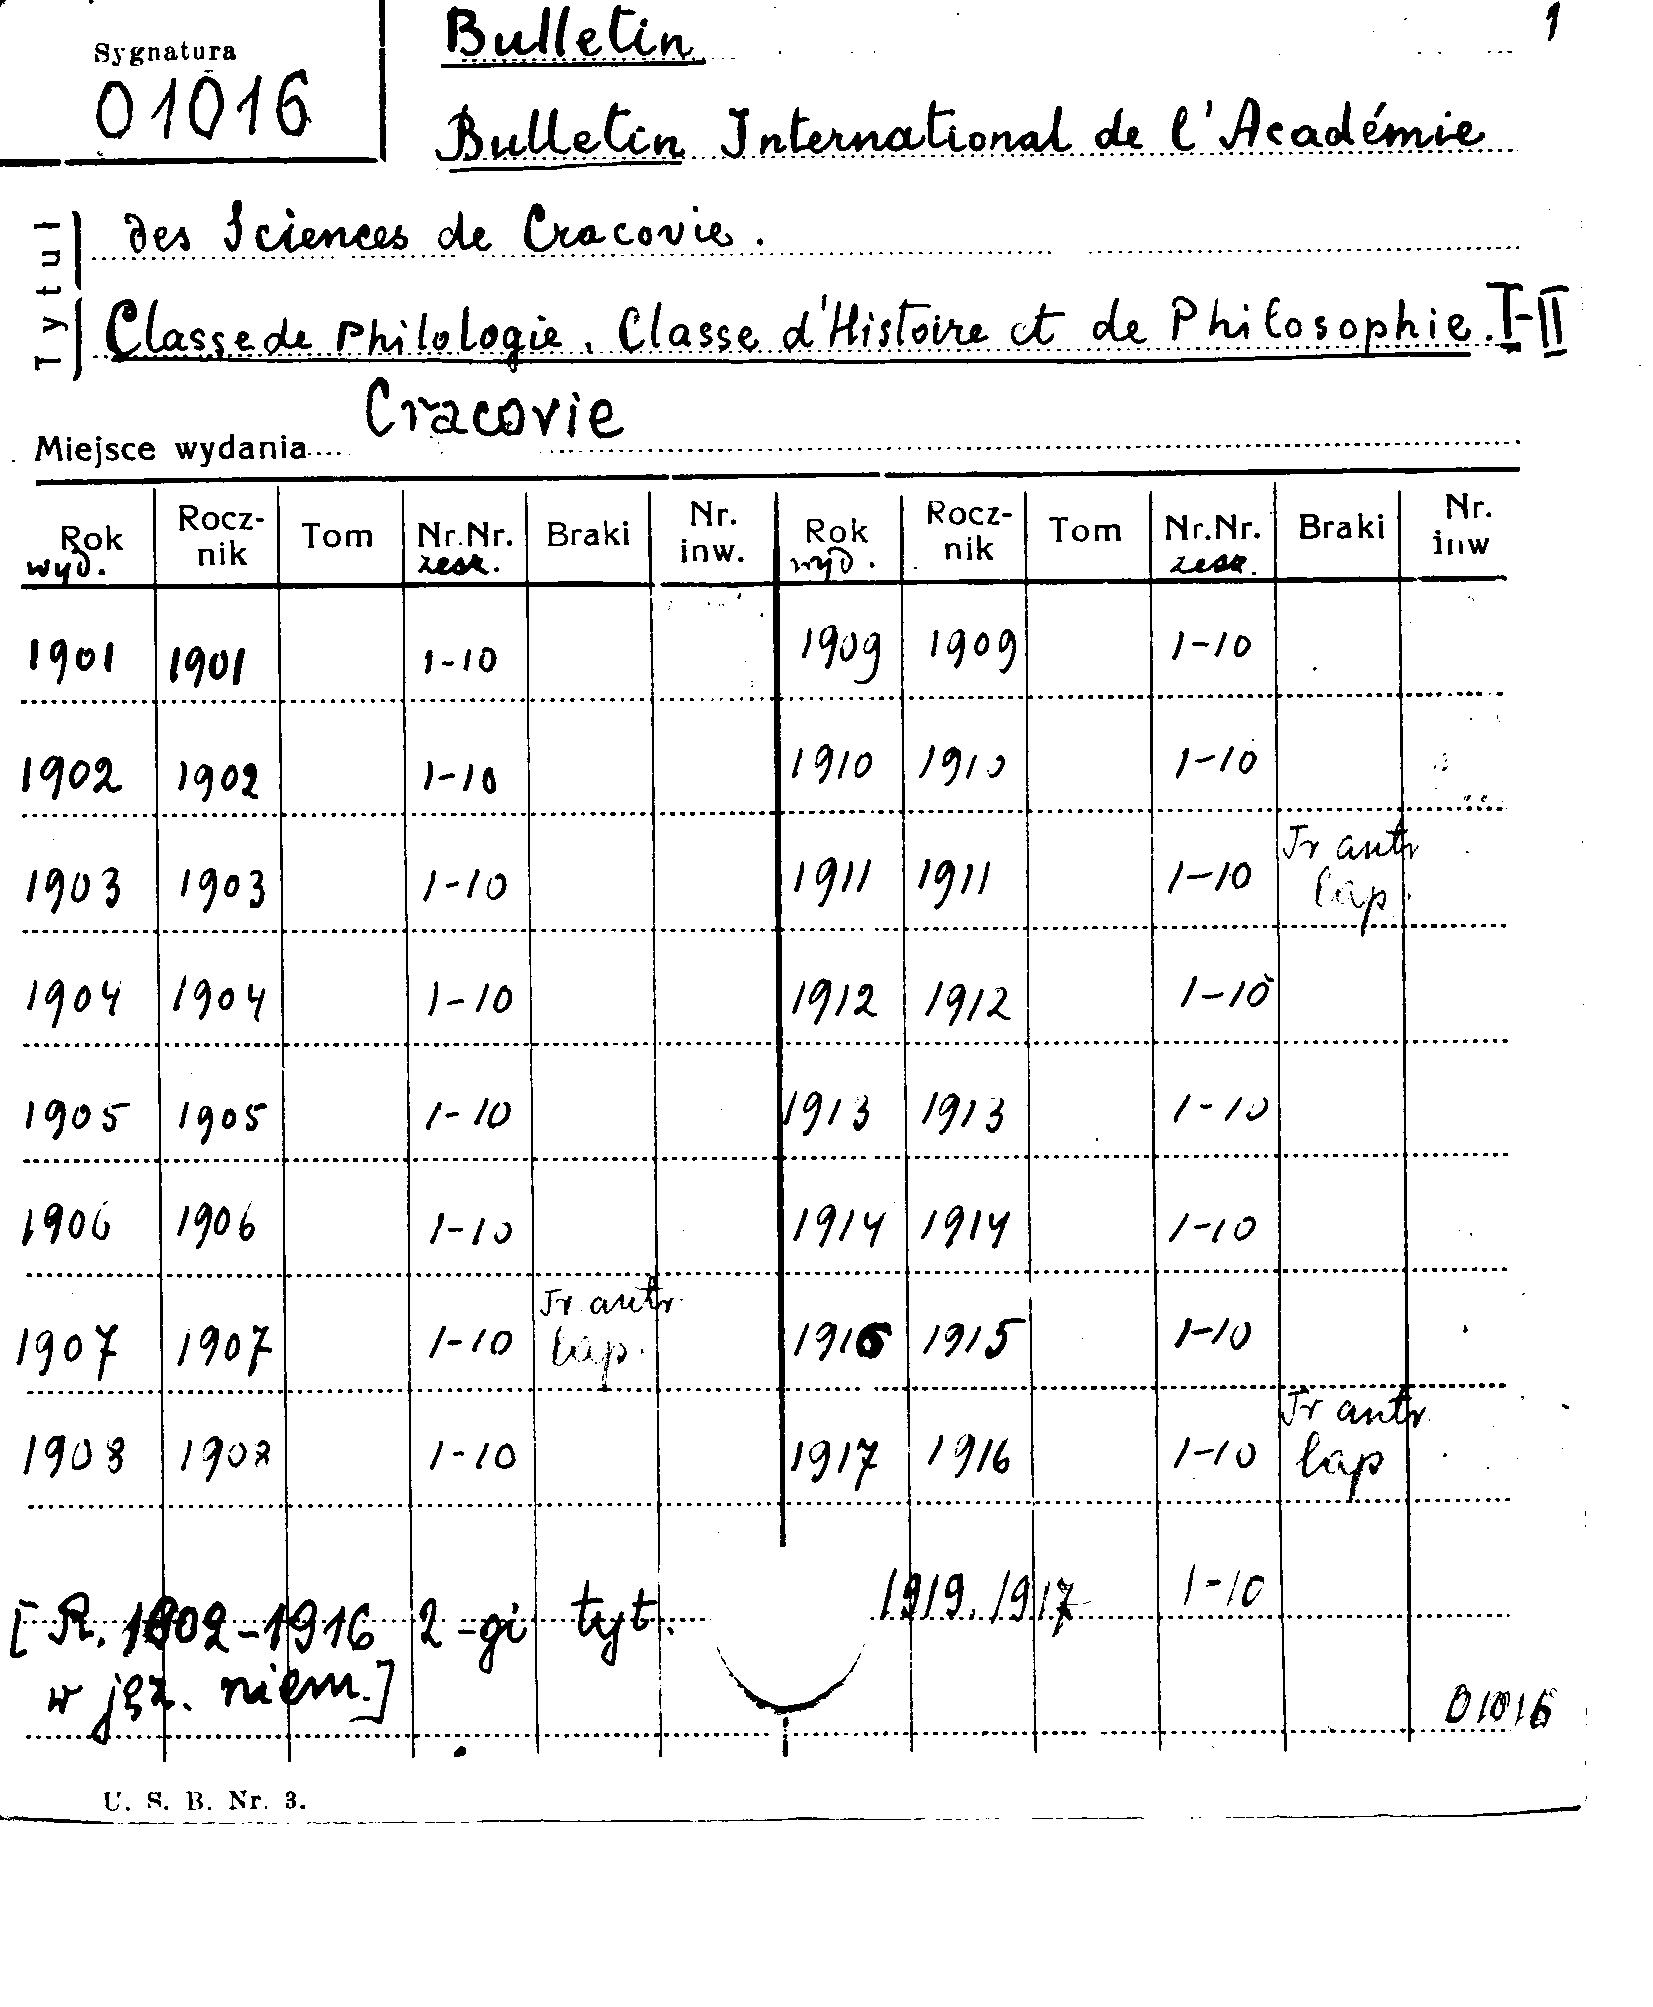 Sygnatura
01016
1
Bulletin
Bulletin International de l'Académie
des Sciences de Cracovie.
Classe de Philologie. Classe d'Histoire et de Philosophie. I-II
Tytuł
Miejsce wydania Cracovie
Rok wyd. Rocznik Tom Nr.Nr. zesz. Braki Nr. inw. Rok wyd. Rocznik Tom Nr.Nr. zesz. Braki Nr. inw
1901 1901 1-10 1909 1909 1-10
1902 1902 1-10 1910 1910 1-10
1903 1903 1-10 1911 1911 1-10
1904 1904 1-10 1912 1912 1-10
1905 1905 1-10 1913 1913 1-10
1906 1906 1-10 1914 1914 1-10
1907 1907 1-10 1916 1915 1-10
1908 1908 1-10 1917 1916 1-10
1919. 1917 1-10
[R. 1902-1916 2-gi tyt.
w jęz. niem.]
01016
U. S. B. Nr. 3.